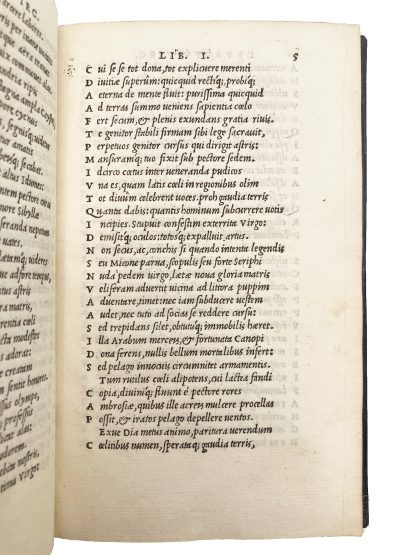 IRG.
ore cycnus
alius Idumes:
more Sibyllæ
nates.
tus astris
ra matris,
es adorat:
m creatam
n sentit honores.
olympo,
LIB. I. 5
C ui se se tot dona, tot explicuere merenti
D iuitiæ superûm: quicquid rectiq́;, probiq́;
A eterna de mente fluit: purissima quicquid
A d terras summo ueniens sapientia cœlo
F ert secum, & plenis exundans gratia riuis.
T e genitor stabili firmam sibi lege sacrauit,
P erpetuos genitor cursus qui dirigit astris:
M ansuramq́; tuo fixit sub pectore sedem.
I dcirco cœtus inter ueneranda pudicos
V na es, quam latis cœli in regionibus olim
T ot diuûm celebrent uoces. proh gaudia terris
Q uanta dabis: quantis hominum subcurrere uotis
I ncipies. Stupuit confestim exterrita Virgo:
D emisitq́; oculos: totosq́; expalluit artus.
N on secus, ac, conchis si quando intenta legendis
S eu Micone parua, scopulis seu forte Seriphi
N uda pedem uirgo, lætæ noua gloria matris
V eliferam aduertit uicina ad littora puppim
A duentare, timet: nec iam subducere uestem
A udet, nec tuto ad socias se reddere cursu:
S ed trepidans silet, obtutuq́; immobilis hæret.
I lla Arabum merces, & fortunata Canopi
D ona ferens, nullis bellum mortalibus infert:
S ed pelago innocuis circumnitet armamentis.
Tum rutilus cœli alipotens, cui lactea fandi
C opia, diuiniq́; fluunt è pectore rores
A mbrosiæ, quibus ille acres mulcere procellas
P ossit, & iratos pelago depellere uentos.
Exue Dia metus animo, paritura uerendum
C œlitibus numen, sperataq́; gaudia terris,